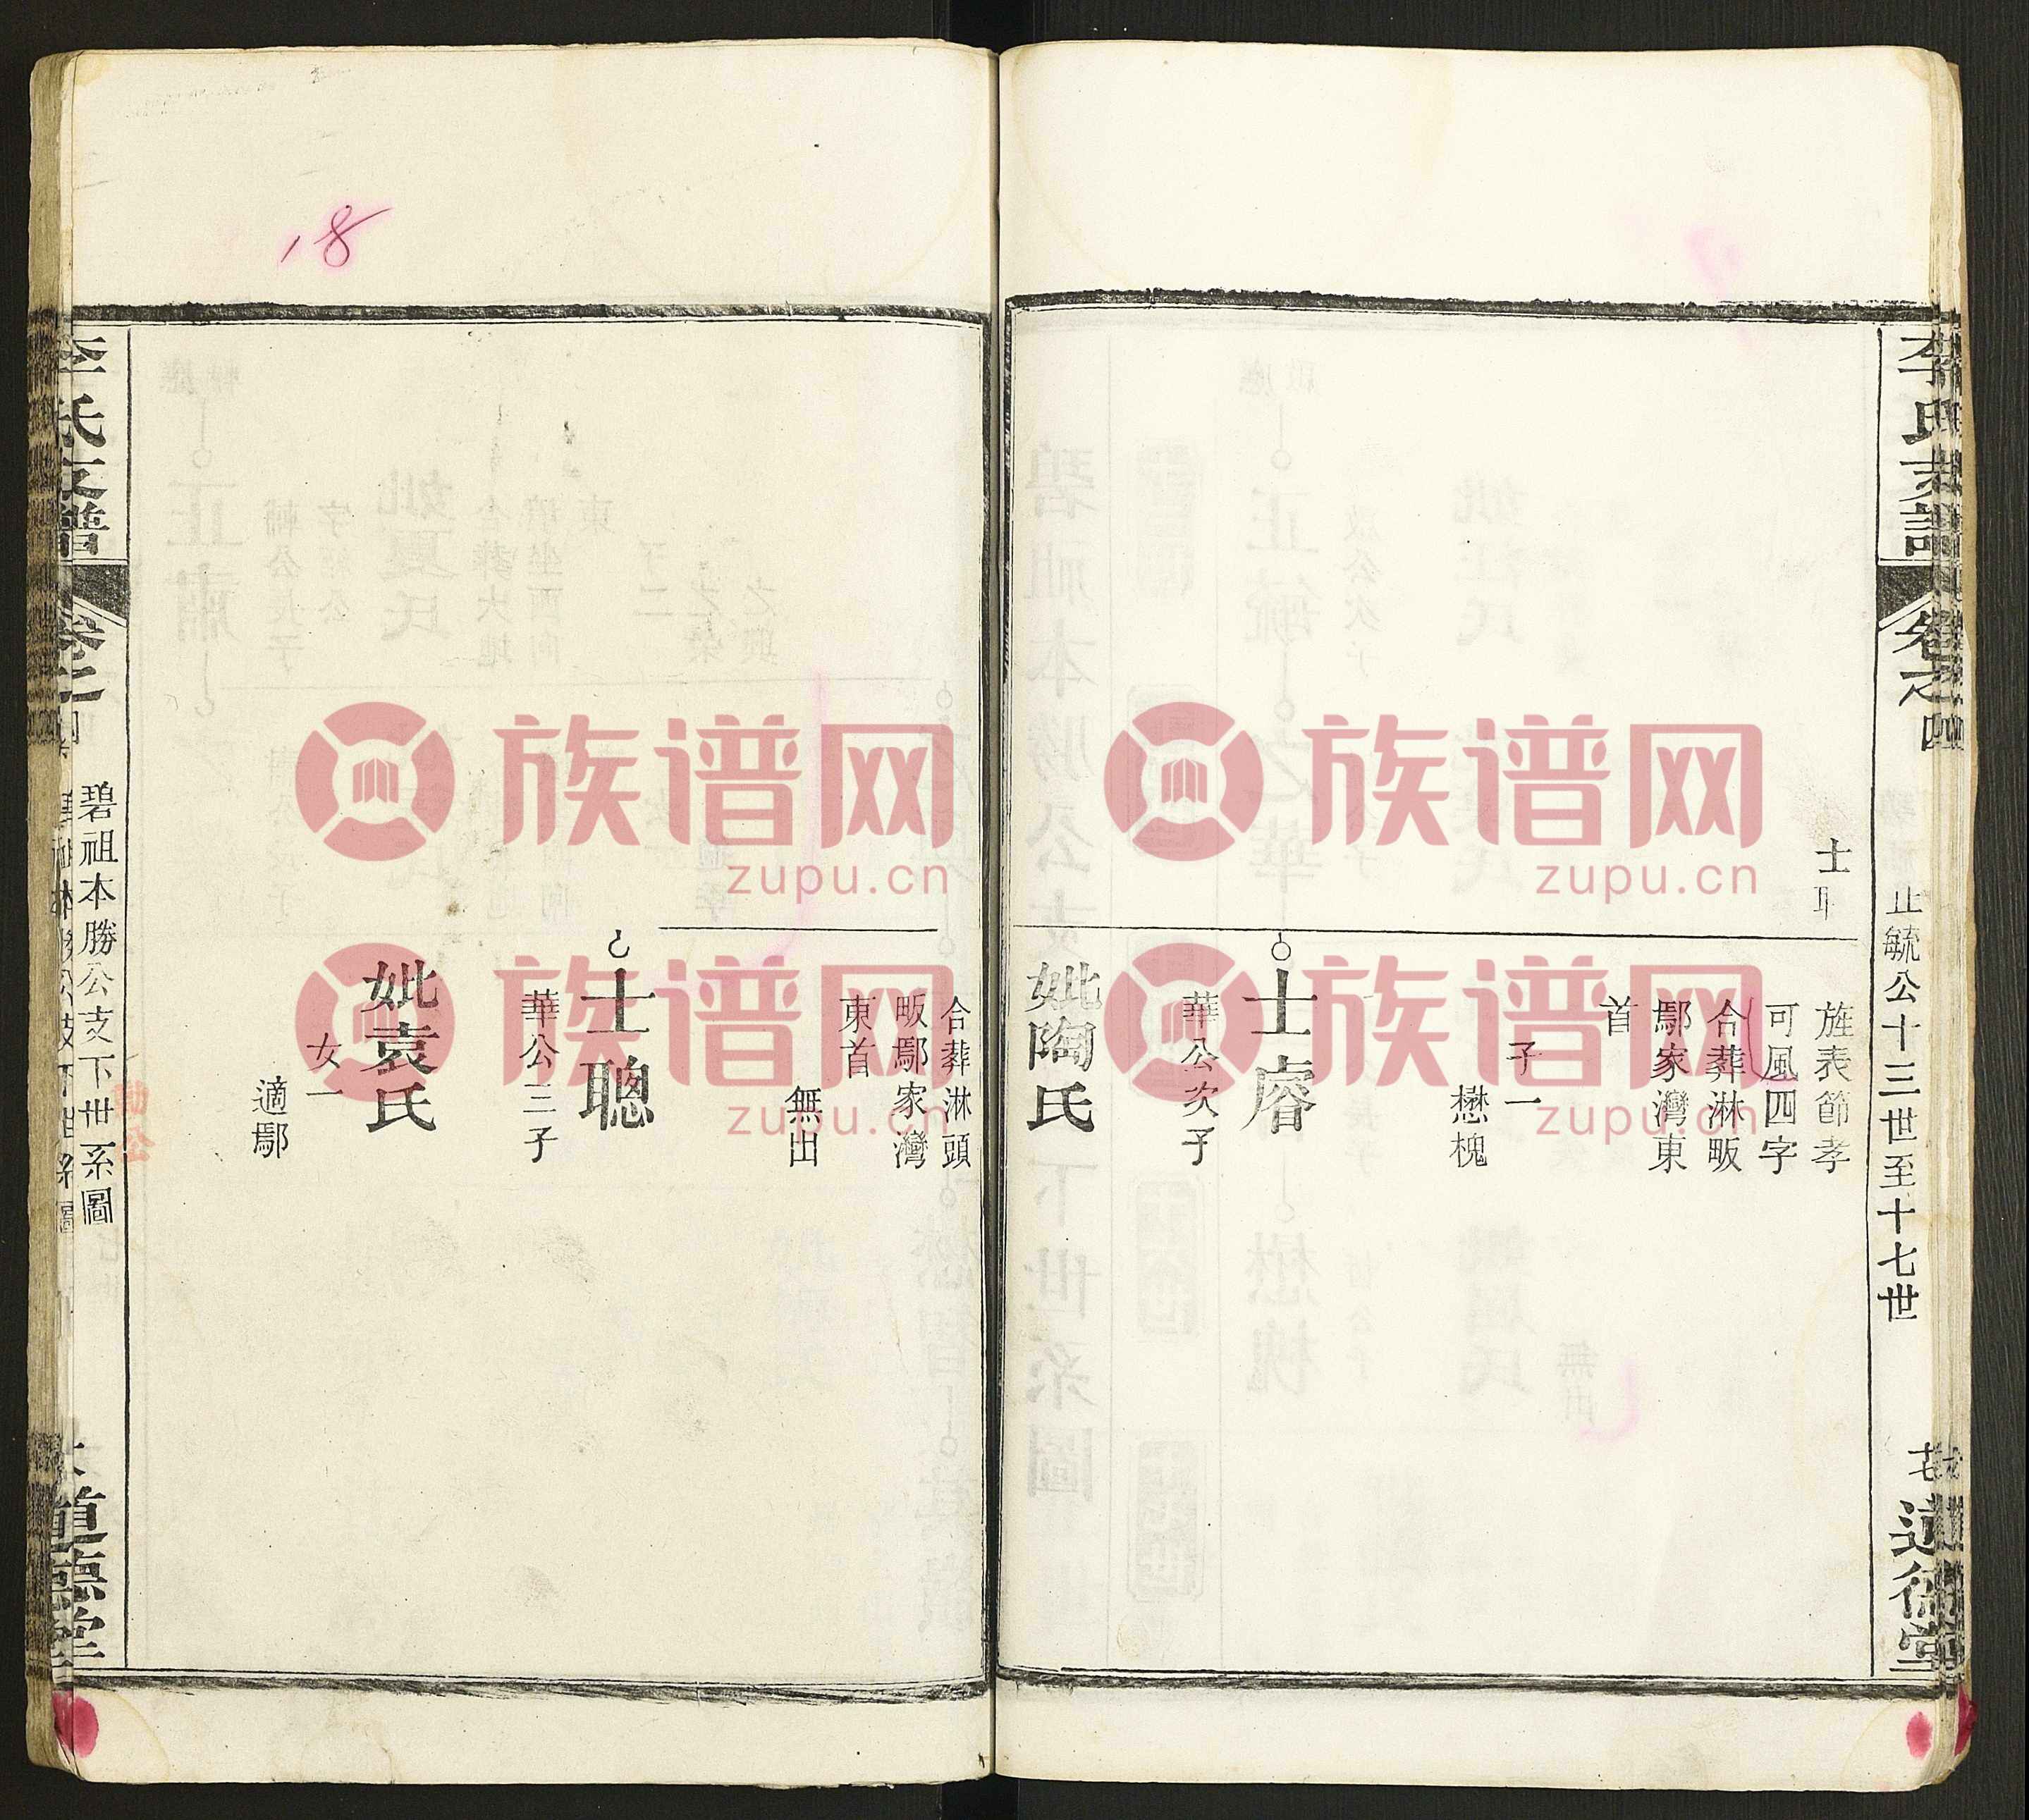 李氏支譜
卷之四
正毓公十三世至十七世
道德堂
士耶
旌表節孝
可風四字
合葬淋畈
鄢家灣東
首
子一
懋槐
士睿
華公次子
妣陶氏
合葬淋頭
畈鄢家灣
東首
無出
士聰
華公三子
妣袁氏
女一
適鄢
18
李氏支譜
卷之
碧祖本勝公支下世系圖
道德堂
族谱网
zupu.cn
族谱网
zupu.cn
族谱网
zupu.cn
族谱网
zupu.cn